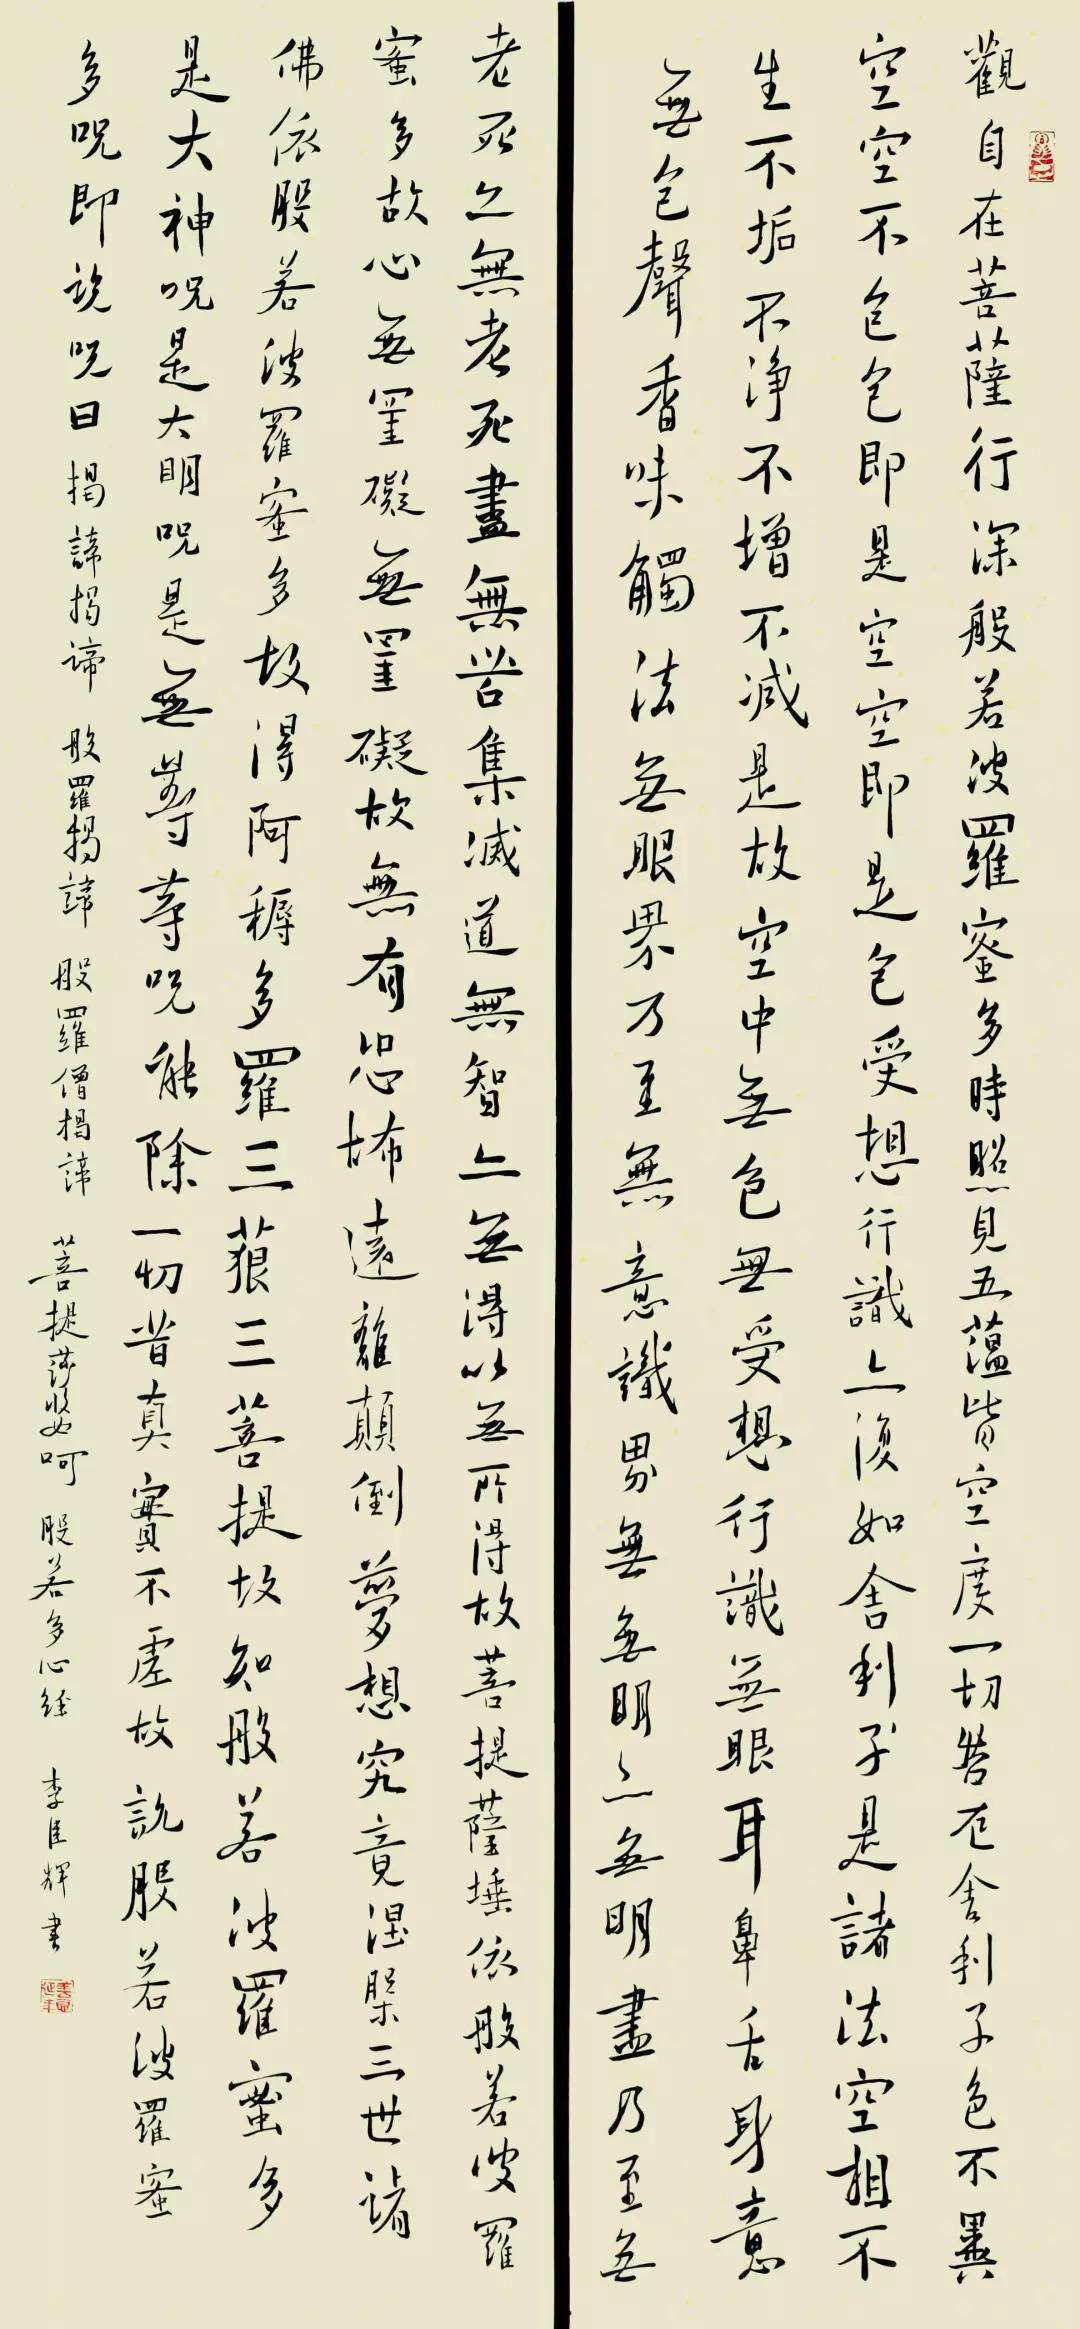 觀自在菩薩行深般若波羅蜜多時照見五蘊皆空度一切苦厄舍利子色不異
空空不色色即是空空即是色受想行識亦復如舍利子是諸法空相不
生不垢不淨不增不減是故空中無色無受想行識無眼耳鼻舌身意
無色聲香味觸法無眼界乃至無意識界無無明亦無明盡乃至無
老死亦無老死盡無苦集滅道無智亦無得以無所得故菩提薩埵依般若波羅
蜜多故心無罣礙無罣礙故無有恐怖遠離顛倒夢想究竟涅槃三世諸
佛依般若波羅蜜多故得阿耨多羅三藐三菩提故知般若波羅蜜多
是大神咒是大明咒是無等等咒能除一切苦真實不虛故說般若波羅蜜
多咒即說咒曰 揭諦揭諦 般羅揭諦 般羅僧揭諦 菩提莎婆呵 般若多心經 李佳輝書